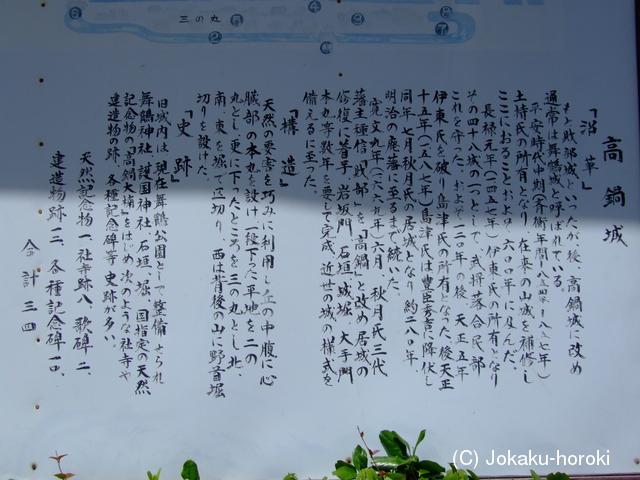 三の丸
高鍋城
「沿革」
もと財部城といったが、後、高鍋城に改め
通常は舞鶴城と呼ばれている。
平安時代中期(斉衡年間八五四年~八五七年)
土持氏の所有となり、在来の山城を補修し
ここにおること、およそ六〇〇年に及んだ。
長禄元年(一四五七年)伊東氏の所有となり
その四十八城の一つとして、武将落合民部
これを守った。およそ一二〇年の後、天正五年
伊東氏を破り島津氏の所有となった後天正
十五年(一五八七年)島津氏は豊臣秀吉に降伏し
同年七月秋月氏の居城となり約二八〇年、
明治の廃藩に至るまで続いた。
寛文九年(一六六九年)六月、秋月氏三代
藩主種信「財部」を「高鍋」と改め居城の
修復に着手、岩坂門、石垣、城堀、大手門
本丸等数年を要して完成、近世の城の様式を
備えるに至った。
「構造」
天然の要害を巧みに利用し丘の中腹に心
臓部の本丸を設け一段下った平地を二の
丸とし更に下ったところを三の丸とし北、
南、東を堀で区切り、西は背後の山に野首堀
切りを設けた。
「史跡」
旧城内は、現在舞鶴公園として整備され
舞鶴神社、護国神社、石垣、堀、国指定の天然
記念物の「高鍋大楠」をはじめ次のような社寺や
建造物の跡、各種記念碑等史跡が多い。
天然記念物一、社寺跡八、歌碑二、
建造物跡一三、各種記念碑一〇、
合計三四
(C) Jokaku-horoki